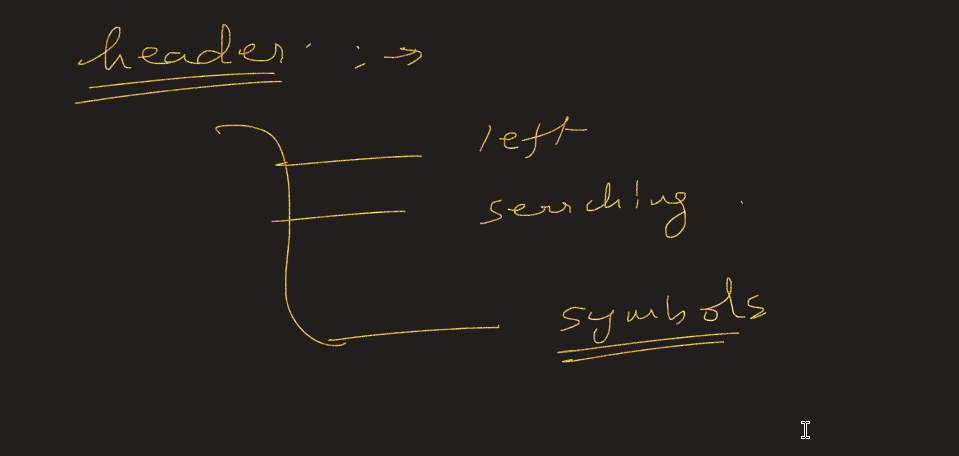 header : →
left
serrching
symbols